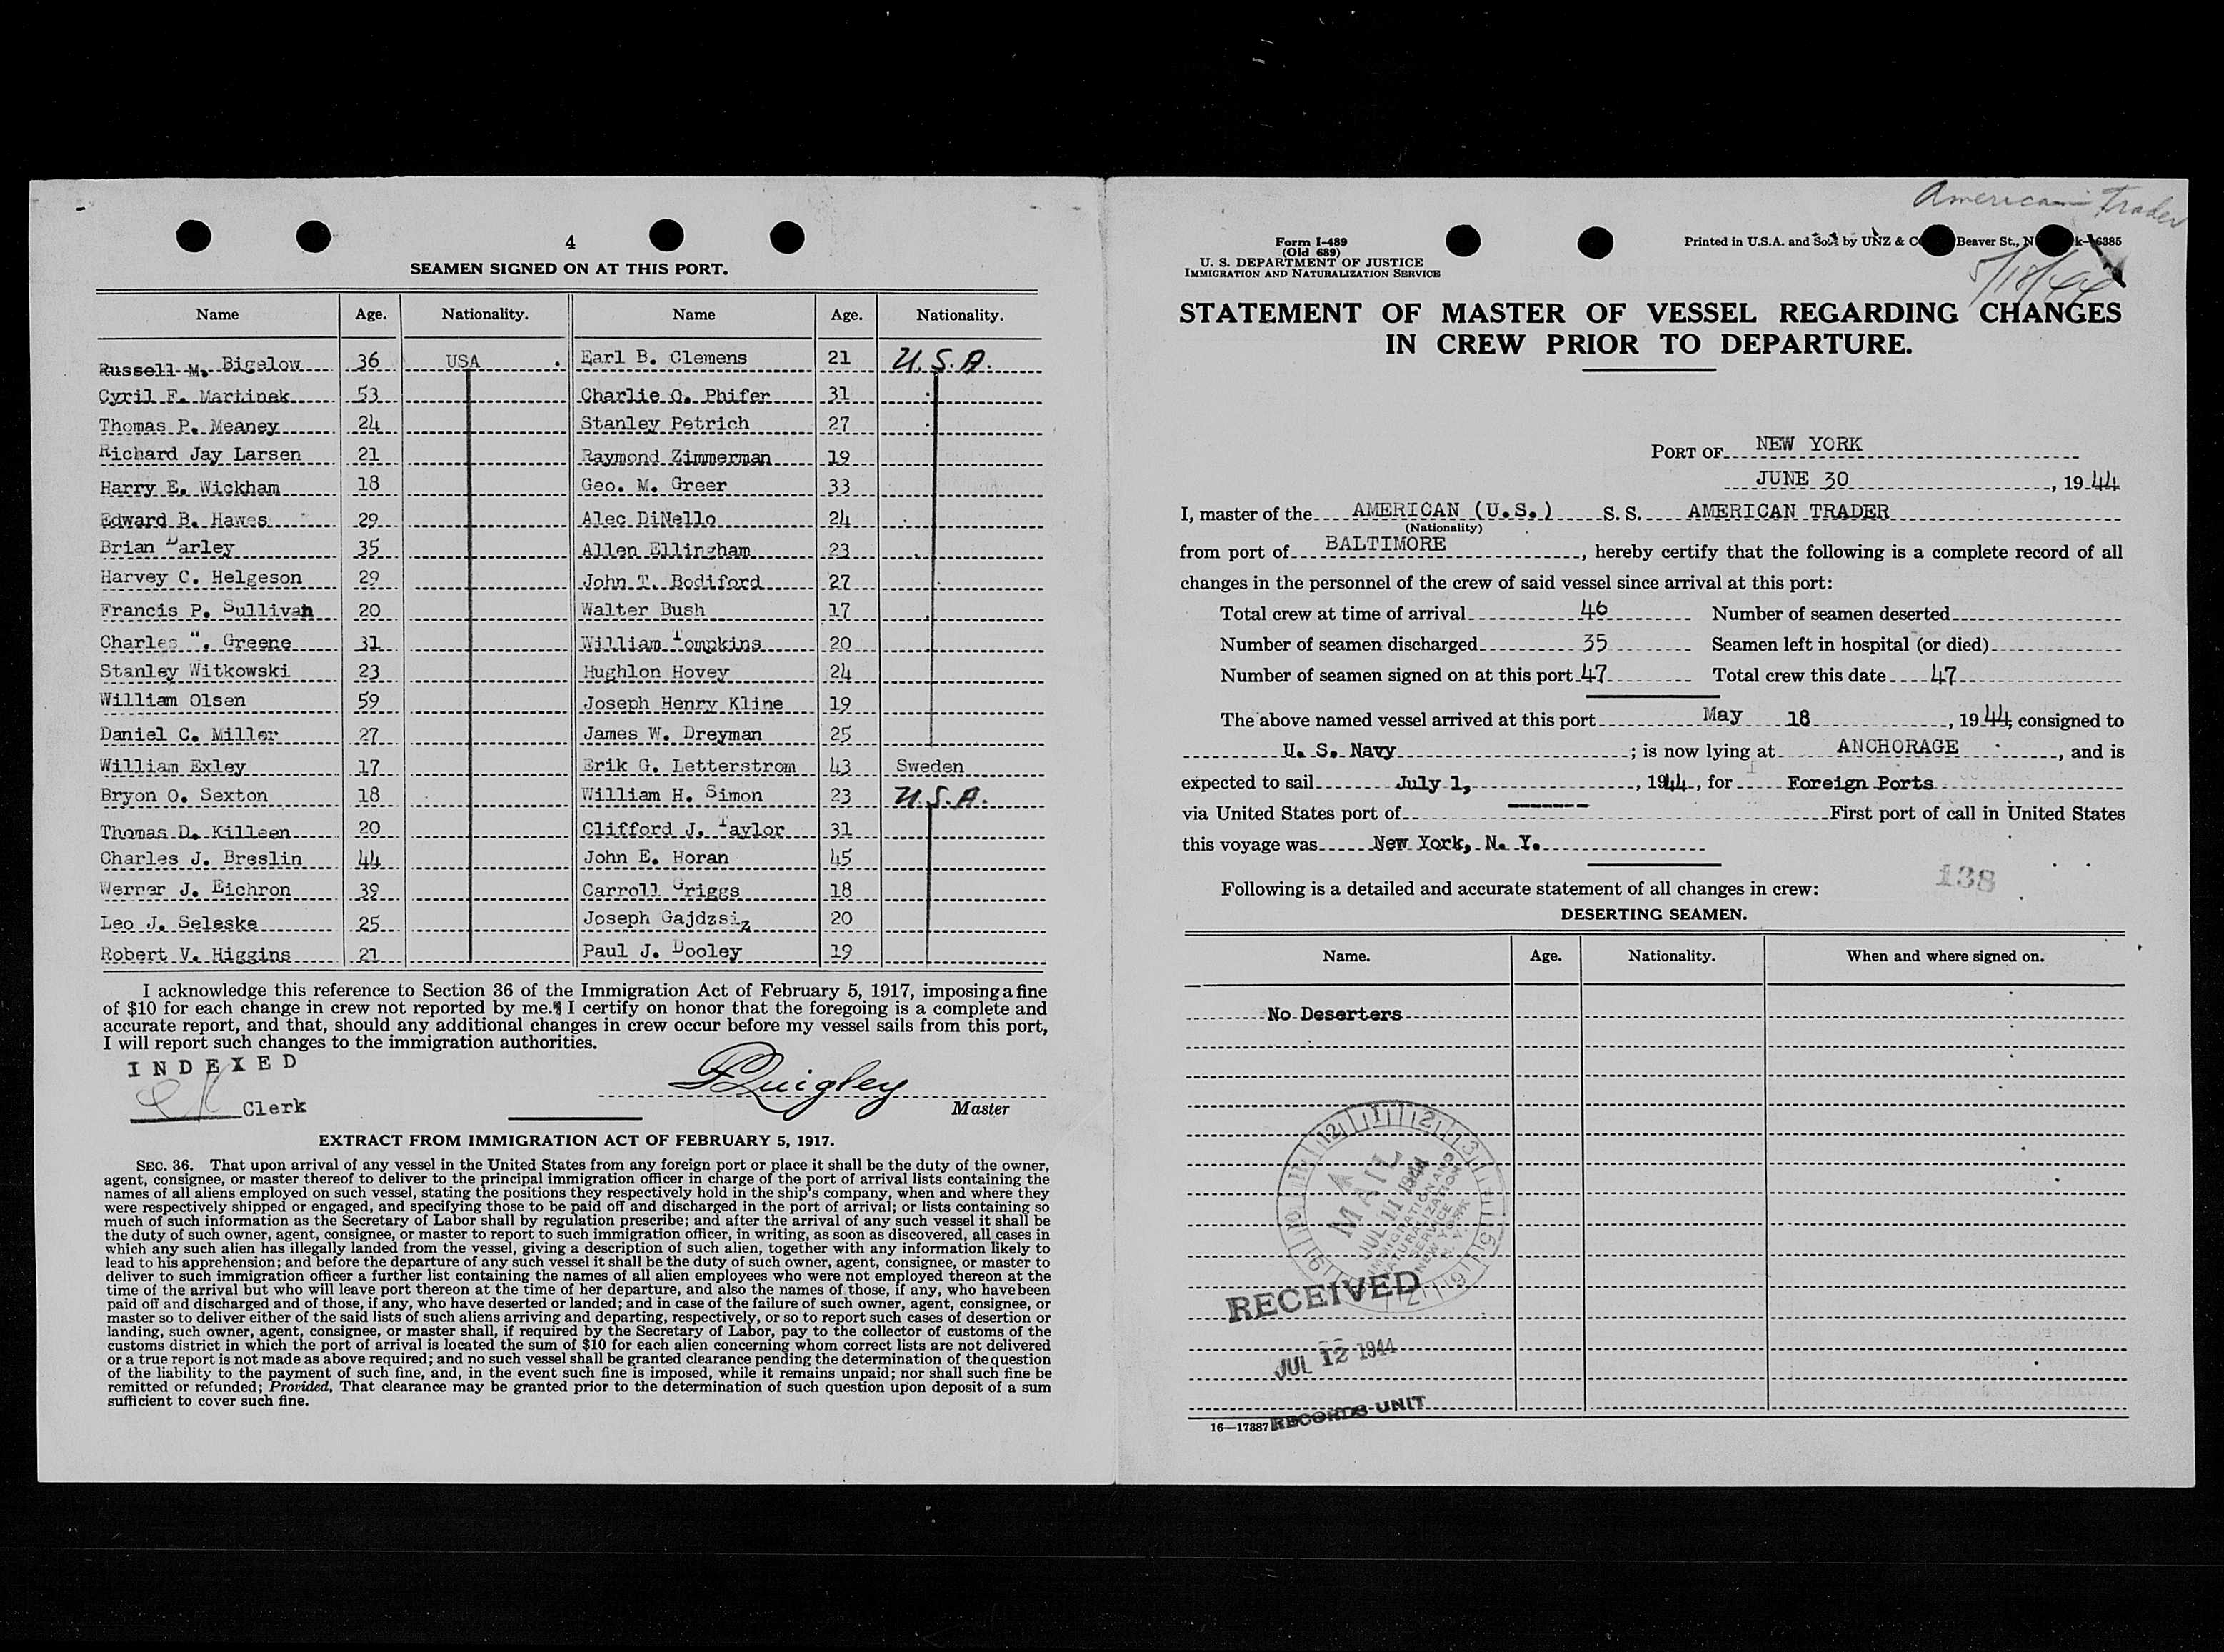 4
SEAMEN SIGNED ON AT THIS PORT.
Name Age. Nationality. Name Age. Nationality.
Russell M. Bigelow 36 USA Earl B. Clemens 21 U.S.A.
Cyril F. Martinek 53 Charlie O. Phifer 31
Thomas P. Meaney 24 Stanley Petrich 27
Richard Jay Larsen 21 Raymond Zimmerman 19
Harry E. Wickham 18 Geo. M. Greer 33
Edward B. Hawes 29 Alec DiNello 24
Brian Darley 35 Allen Ellingham 23
Harvey C. Helgeson 29 John T. Bodiford 27
Francis P. Sullivan 20 Walter Bush 17
Charles ". Greene 31 William Tompkins 20
Stanley Witkowski 23 Hughlon Hovey 24
William Olsen 59 Joseph Henry Kline 19
Daniel C. Miller 27 James W. Dreyman 25
William Exley 17 Erik G. Letterstrom 43 Sweden
Bryon O. Sexton 18 William H. Simon 23 U.S.A.
Thomas D. Killeen 20 Clifford J. Taylor 31
Charles J. Breslin 44 John E. Horan 45
Werner J. Eichron 39 Carroll Griggs 18
Leo J. Seleske 25 Joseph Gajdzsiz 20
Robert V. Higgins 21 Paul J. Dooley 19
I acknowledge this reference to Section 36 of the Immigration Act of February 5, 1917, imposing a fine
of $10 for each change in crew not reported by me. I certify on honor that the foregoing is a complete and
accurate report, and that, should any additional changes in crew occur before my vessel sails from this port,
I will report such changes to the immigration authorities.
INDEXED
Clerk
Quigley
Master
EXTRACT FROM IMMIGRATION ACT OF FEBRUARY 5, 1917.
SEC. 36. That upon arrival of any vessel in the United States from any foreign port or place it shall be the duty of the owner,
agent, consignee, or master thereof to deliver to the principal immigration officer in charge of the port of arrival lists containing the
names of all aliens employed on such vessel, stating the positions they respectively hold in the ship's company, when and where they
were respectively shipped or engaged, and specifying those to be paid off and discharged in the port of arrival; or lists containing so
much of such information as the Secretary of Labor shall by regulation prescribe; and after the arrival of any such vessel it shall be
the duty of such owner, agent, consignee, or master to report to such immigration officer, in writing, as soon as discovered, all cases in
which any such alien has illegally landed from the vessel, giving a description of such alien, together with any information likely to
lead to his apprehension; and before the departure of any such vessel it shall be the duty of such owner, agent, consignee, or master to
deliver to such immigration officer a further list containing the names of all alien employees who were not employed thereon at the
time of the arrival but who will leave port thereon at the time of her departure, and also the names of those, if any, who have been
paid off and discharged and of those, if any, who have deserted or landed; and in case of the failure of such owner, agent, consignee, or
master so to deliver either of the said lists of such aliens arriving and departing, respectively, or so to report such cases of desertion or
landing, such owner, agent, consignee, or master shall, if required by the Secretary of Labor, pay to the collector of customs of the
customs district in which the port of arrival is located the sum of $10 for each alien concerning whom correct lists are not delivered
or a true report is not made as above required; and no such vessel shall be granted clearance pending the determination of the question
of the liability to the payment of such fine, and, in the event such fine is imposed, while it remains unpaid; nor shall such fine be
remitted or refunded; Provided, That clearance may be granted prior to the determination of such question upon deposit of a sum
sufficient to cover such fine.
American Trader
5/18/44
Form I-489
(Old 689)
U. S. DEPARTMENT OF JUSTICE
IMMIGRATION AND NATURALIZATION SERVICE
Printed in U.S.A. and Sold by UNZ & C Beaver St., N k-6385
STATEMENT OF MASTER OF VESSEL REGARDING CHANGES
IN CREW PRIOR TO DEPARTURE.
PORT OF NEW YORK
JUNE 30, 1944
I, master of the AMERICAN (U.S.) S. S. AMERICAN TRADER
(Nationality)
from port of BALTIMORE, hereby certify that the following is a complete record of all
changes in the personnel of the crew of said vessel since arrival at this port:
Total crew at time of arrival 46 Number of seamen deserted
Number of seamen discharged 35 Seamen left in hospital (or died)
Number of seamen signed on at this port 47 Total crew this date 47
The above named vessel arrived at this port May 18, 1944, consigned to
U. S. Navy; is now lying at ANCHORAGE, and is
expected to sail July 1, 1944, for Foreign Ports
via United States port of ---- First port of call in United States
this voyage was New York, N. Y.
138
Following is a detailed and accurate statement of all changes in crew:
DESERTING SEAMEN.
Name. Age. Nationality. When and where signed on.
No Deserters
12 1 2 3
A
MAIL
JUL 11 1944
IMMIGRATION AND
NATURALIZATION
SERVICE
NEW YORK
N. Y.
RECEIVED
JUL 12 1944
RECORDS UNIT
16—17887